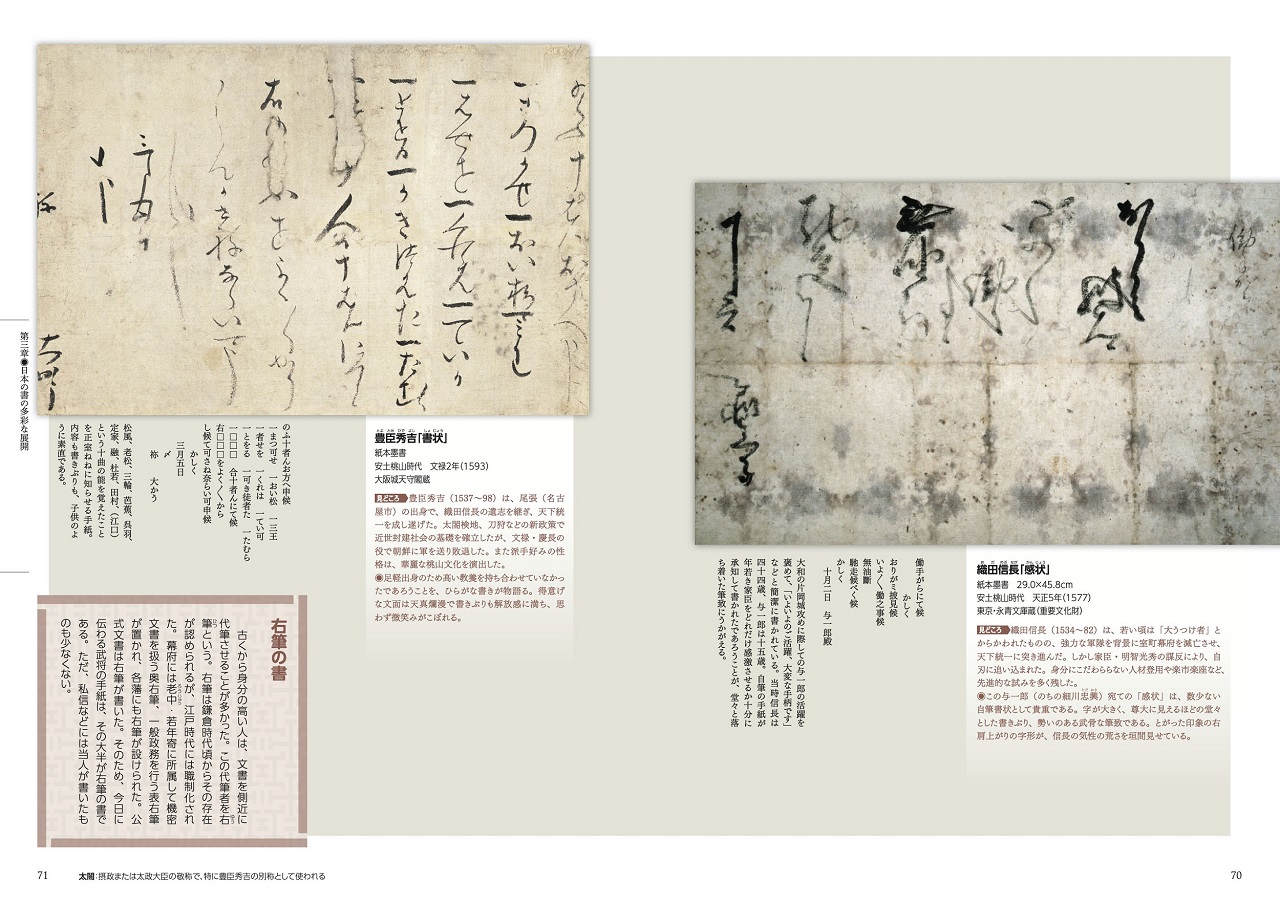 織田信長「感状」
お だ のぶ なが　かんじょう
紙本墨書　29.0×45.8cm
安土桃山時代　天正5年(1577)
東京・永青文庫蔵(重要文化財)
見どころ 織田信長（1534〜82）は、若い頃は「大うつけ者」と
からかわれたものの、強力な軍隊を背景に室町幕府を滅亡させ、
天下統一に突き進んだ。しかし家臣・明智光秀の謀反により、自
刃に追い込まれた。身分にこだわらない人材登用や楽市楽座など、
先進的な試みを多く残した。
●この与一郎（のちの細川忠興）宛ての「感状」は、数少ない
自筆書状として貴重である。字が大きく、尊大に見えるほどの堂々
とした書きぶり、勢いのある武骨な筆致である。とがった印象の右
肩上がりの字形が、信長の気性の荒さを垣間見せている。
働手がらにて候
かしく
おりがミ披見候
いよ〳〵働之事候
無油断
馳走候べく候
かしく
十月二日　与一郎殿
大和の片岡城攻めに際しての与一郎の活躍を
褒めて、「いよいよのご活躍、大変な手柄です」
などと簡潔に書かれている。当時信長は
四十四歳、与一郎は十五歳。自筆の手紙が
年若き家臣をどれだけ感激させるか十分に
承知して書かれたであろうことが、堂々と落
ち着いた筆致にうかがえる。
70
豊臣秀吉「書状」
とよ とみ ひで よし　しょじょう
紙本墨書
安土桃山時代　文禄2年(1593)
大阪城天守閣蔵
見どころ 豊臣秀吉（1537〜98）は、尾張（名古
屋市）の出身で、織田信長の遺志を継ぎ、天下統
一を成し遂げた。太閤検地、刀狩などの新政策で
近世封建社会の基礎を確立したが、文禄・慶長の
役で朝鮮に軍を送り敗退した。また派手好みの性
格は、華麗な桃山文化を演出した。
●足軽出身のため高い教養を持ち合わせていなかっ
たであろうことを、ひらがな書きが物語る。得意げ
な文面は天真爛漫で書きぶりも解放感に満ち、思
わず微笑みがこぼれる。
のふ十者んお方へ申候
一まつ可せ　一おい松　一三王
一者せを　一くれは　一てい可
一とをる　一可き徒者た　一たむら
一□□□　合十者んにて候
右□□□をよく〳〵から
し候て可さね奈らい可申候
かしく
三月五日
〆
祢　大かう
松風、老松、三輪、芭蕉、呉羽、
定家、融、杜若、田村、（江口）
という十曲の能を覚えたこと
を正室ねねに知らせる手紙。
内容も書きぶりも、子供のよ
うに素直である。
右筆の書
古くから身分の高い人は、文書を側近に
代筆させることが多かった。この代筆者を右
筆という。右筆は鎌倉時代頃からその存在
が認められるが、江戸時代には職制化され
た。幕府には老中・若年寄に所属して機密
文書を扱う奥右筆、一般政務を行う表右筆
が置かれ、各藩にも右筆が設けられた。公
式文書は右筆が書いた。そのため、今日に
伝わる武将の手紙は、その大半が右筆の書で
ある。ただ、私信などには当人が書いたも
のも少なくない。
第三章●日本の書の多彩な展開
71
太閤：摂政または太政大臣の敬称で、特に豊臣秀吉の別称として使われる